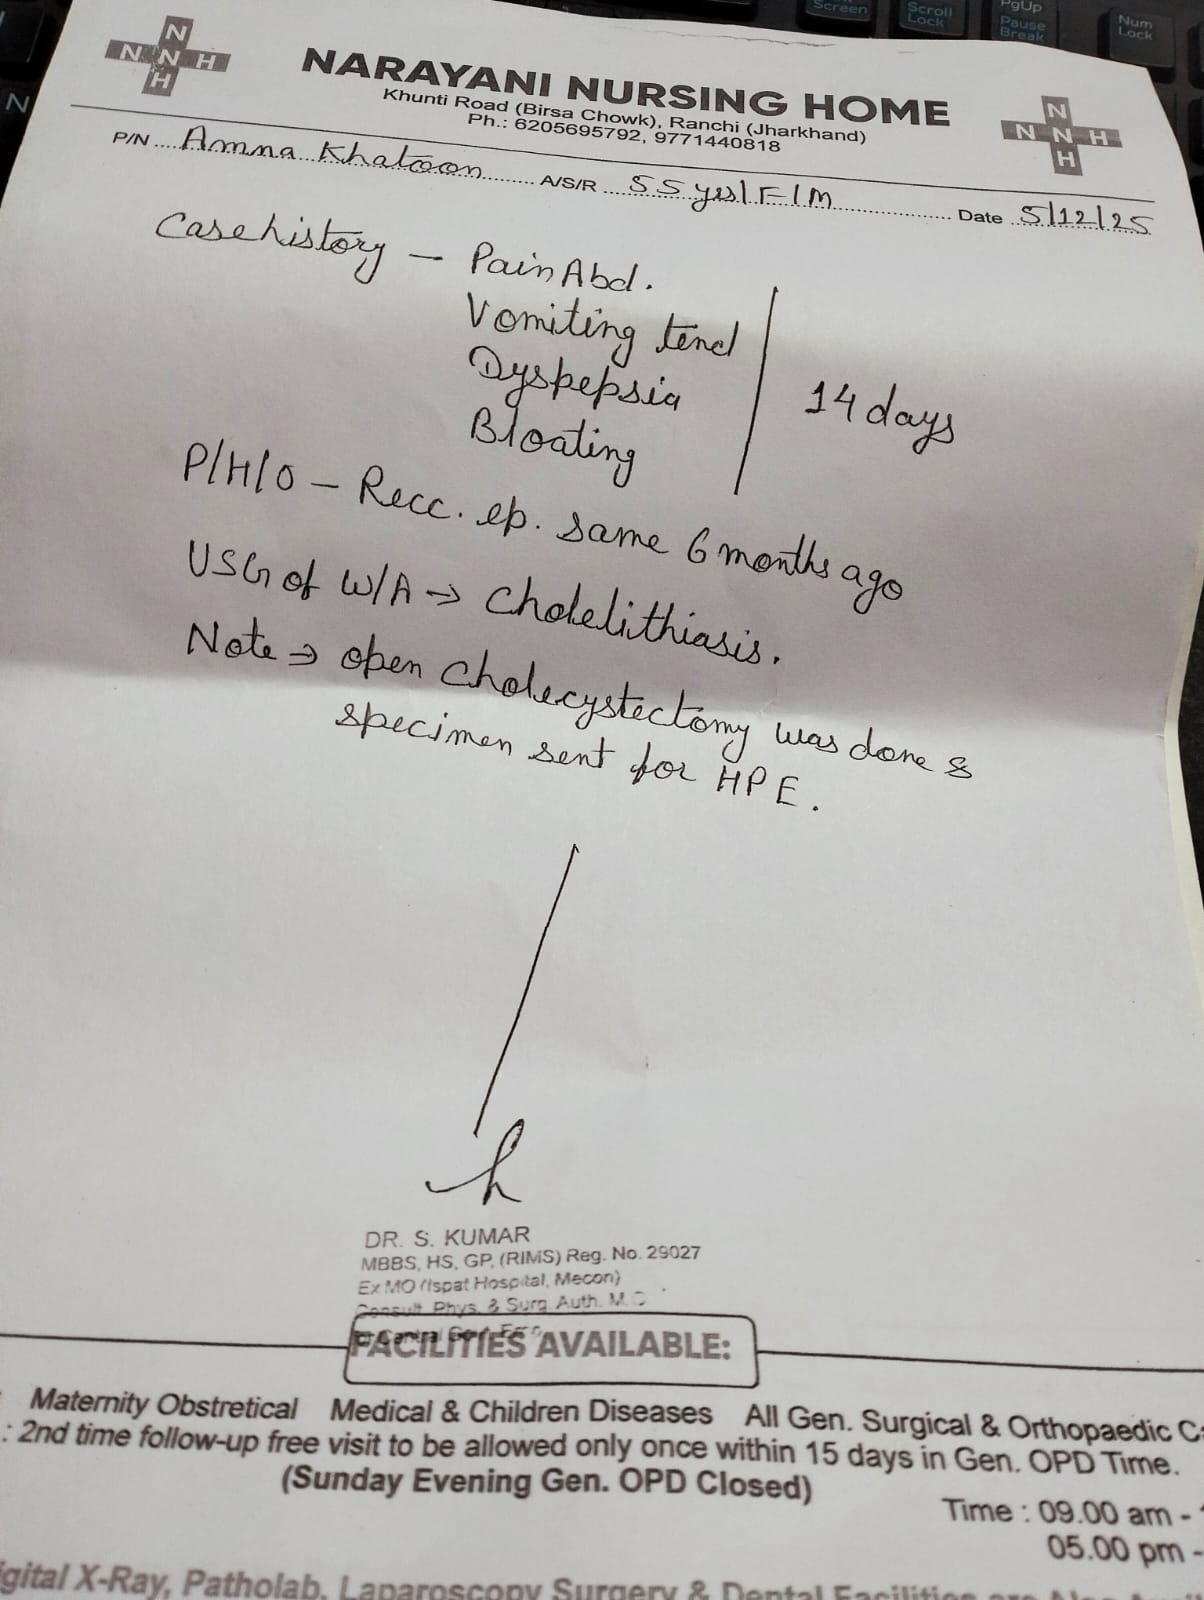 Screen
Scroll Lock
PgUp
Pause Break
Num Lock
N
N N H
H
NARAYANI NURSING HOME
N
N N H
H
Khunti Road (Birsa Chowk), Ranchi (Jharkhand)
Ph.: 6205695792, 9771440818
P/N .... Amna Khatoon ........ A/S/R .... 55 yrs/F/M ........ Date .. 5/12/25
Case history - Pain Abd.
Vomiting tend
Dyspepsia
Bloating
14 days
P/H/O - Recc. ep. same 6 months ago
USG of W/A → Cholelithiasis.
Note → open Cholecystectomy was done &
specimen sent for HPE.
DR. S. KUMAR
MBBS, HS, GP, (RIMS) Reg. No. 29027
Ex MO (Ispat Hospital, Mecon)
Consult. Phys. & Surg. Auth. M.O
FACILITIES AVAILABLE:
Maternity Obstretical Medical & Children Diseases All Gen. Surgical & Orthopaedic
: 2nd time follow-up free visit to be allowed only once within 15 days in Gen. OPD Time.
(Sunday Evening Gen. OPD Closed)
Time : 09.00 am -
05.00 pm -
igital X-Ray, Patholab, Laparoscopy Surgery & Dental Facilities are Also